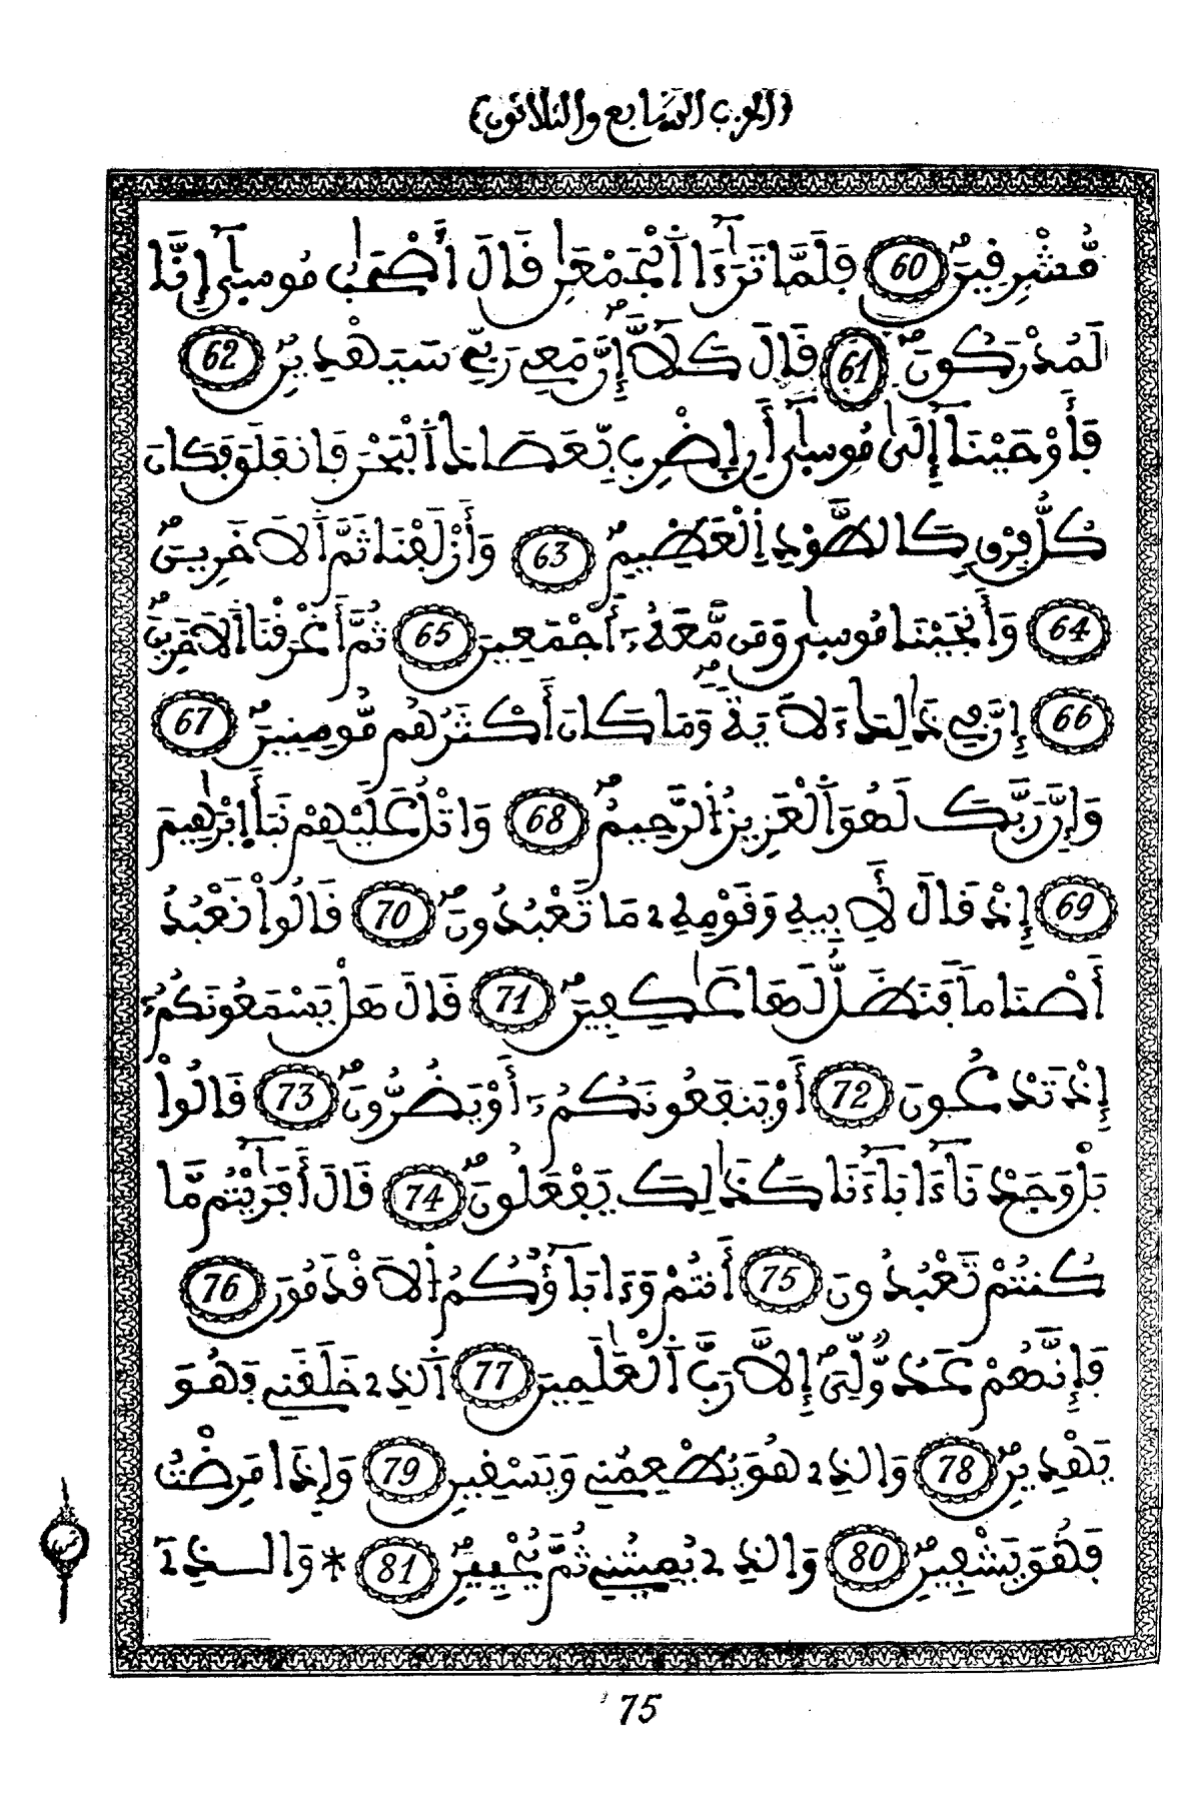 (الحزب السابع والثلاثون)
مُّشْرِفِينَ 60 فَلَمَّا تَرَٰٓءَا اَ۬لْجَمْعَٰنِ قَالَ أَصْحَٰبُ مُوسىٰٓ إِنَّا
لَمُدْرَكُونَ 61 قَالَ كَلَّآ إِنَّ مَعِے رَبِّے سَيَهْدِينِ 62
فَأَوْحَيْنَآ إِلَىٰ مُوسىٰٓ أَنِ اِ۪ضْرِب بِّعَصَاكَ اَ۬لْبَحْرَ فَانفَلَقَ فَكَانَ
كُلُّ فِرْقٖ كَالطَّوْدِ اِ۬لْعَظِيمِ 63 وَأَزْلَفْنَا ثَمَّ اَ۬لَاخَرِينَ
64 وَأَنجَيْنَا مُوسىٰ وَمَن مَّعَهُۥٓ أَجْمَعِينَ 65 ثُمَّ أَغْرَقْنَا اَ۬لَاخَرِينَ
66 إِنَّ فِے ذَٰلِكَ ءَلَايَةٗ وَمَا كَانَ أَكْثَرُهُم مُّومِنِينَ 67
وَإِنَّ رَبَّكَ لَهُوَ اَ۬لْعَزِيزُ اُ۬لرَّحِيمُ 68 وَاتْلُ عَلَيْهِمْ نَبَأَ اِبْرَٰهِيمَ
69 إِذْ قَالَ لَأِبِيهِ وَقَوْمِهِۦ مَا تَعْبُدُونَ 70 قَالُواْ نَعْبُدُ
أَصْنَاماٗ فَنَظَلُّ لَهَا عَٰكِفِينَ 71 قَالَ هَلْ يَسْمَعُونَكُمُۥٓ
إِذْ تَدْعُونَ 72 أَوْ يَنفَعُونَكُمُۥٓ أَوْ يَضُرُّونَ 73 قَالُواْ
بَلْ وَجَدْنَآ ءَابَآءَنَا كَذَٰلِكَ يَفْعَلُونَ 74 قَالَ أَفَرَٰٓيْتُم مَّا
كُنتُمْ تَعْبُدُونَ 75 أَنتُمْ وَءَابَآؤُكُمُ اُ۬لَاقْدَمُونَ 76
فَإِنَّهُمْ عَدُوّٞ لِّيَ إِلَّا رَبَّ اَ۬لْعَٰلَمِينَ 77 اَ۬لذِے خَلَقَنِے فَهُوَ
يَهْدِينِ 78 وَالذِے هُوَ يُطْعِمُنِے وَيَسْقِينِ 79 وَإِذَا مَرِضْتُ
فَهُوَ يَشْفِينِ 80 وَالذِے يُمِيتُنِے ثُمَّ يُحْيِينِ 81 * وَالذِےٓ
ثمن
75